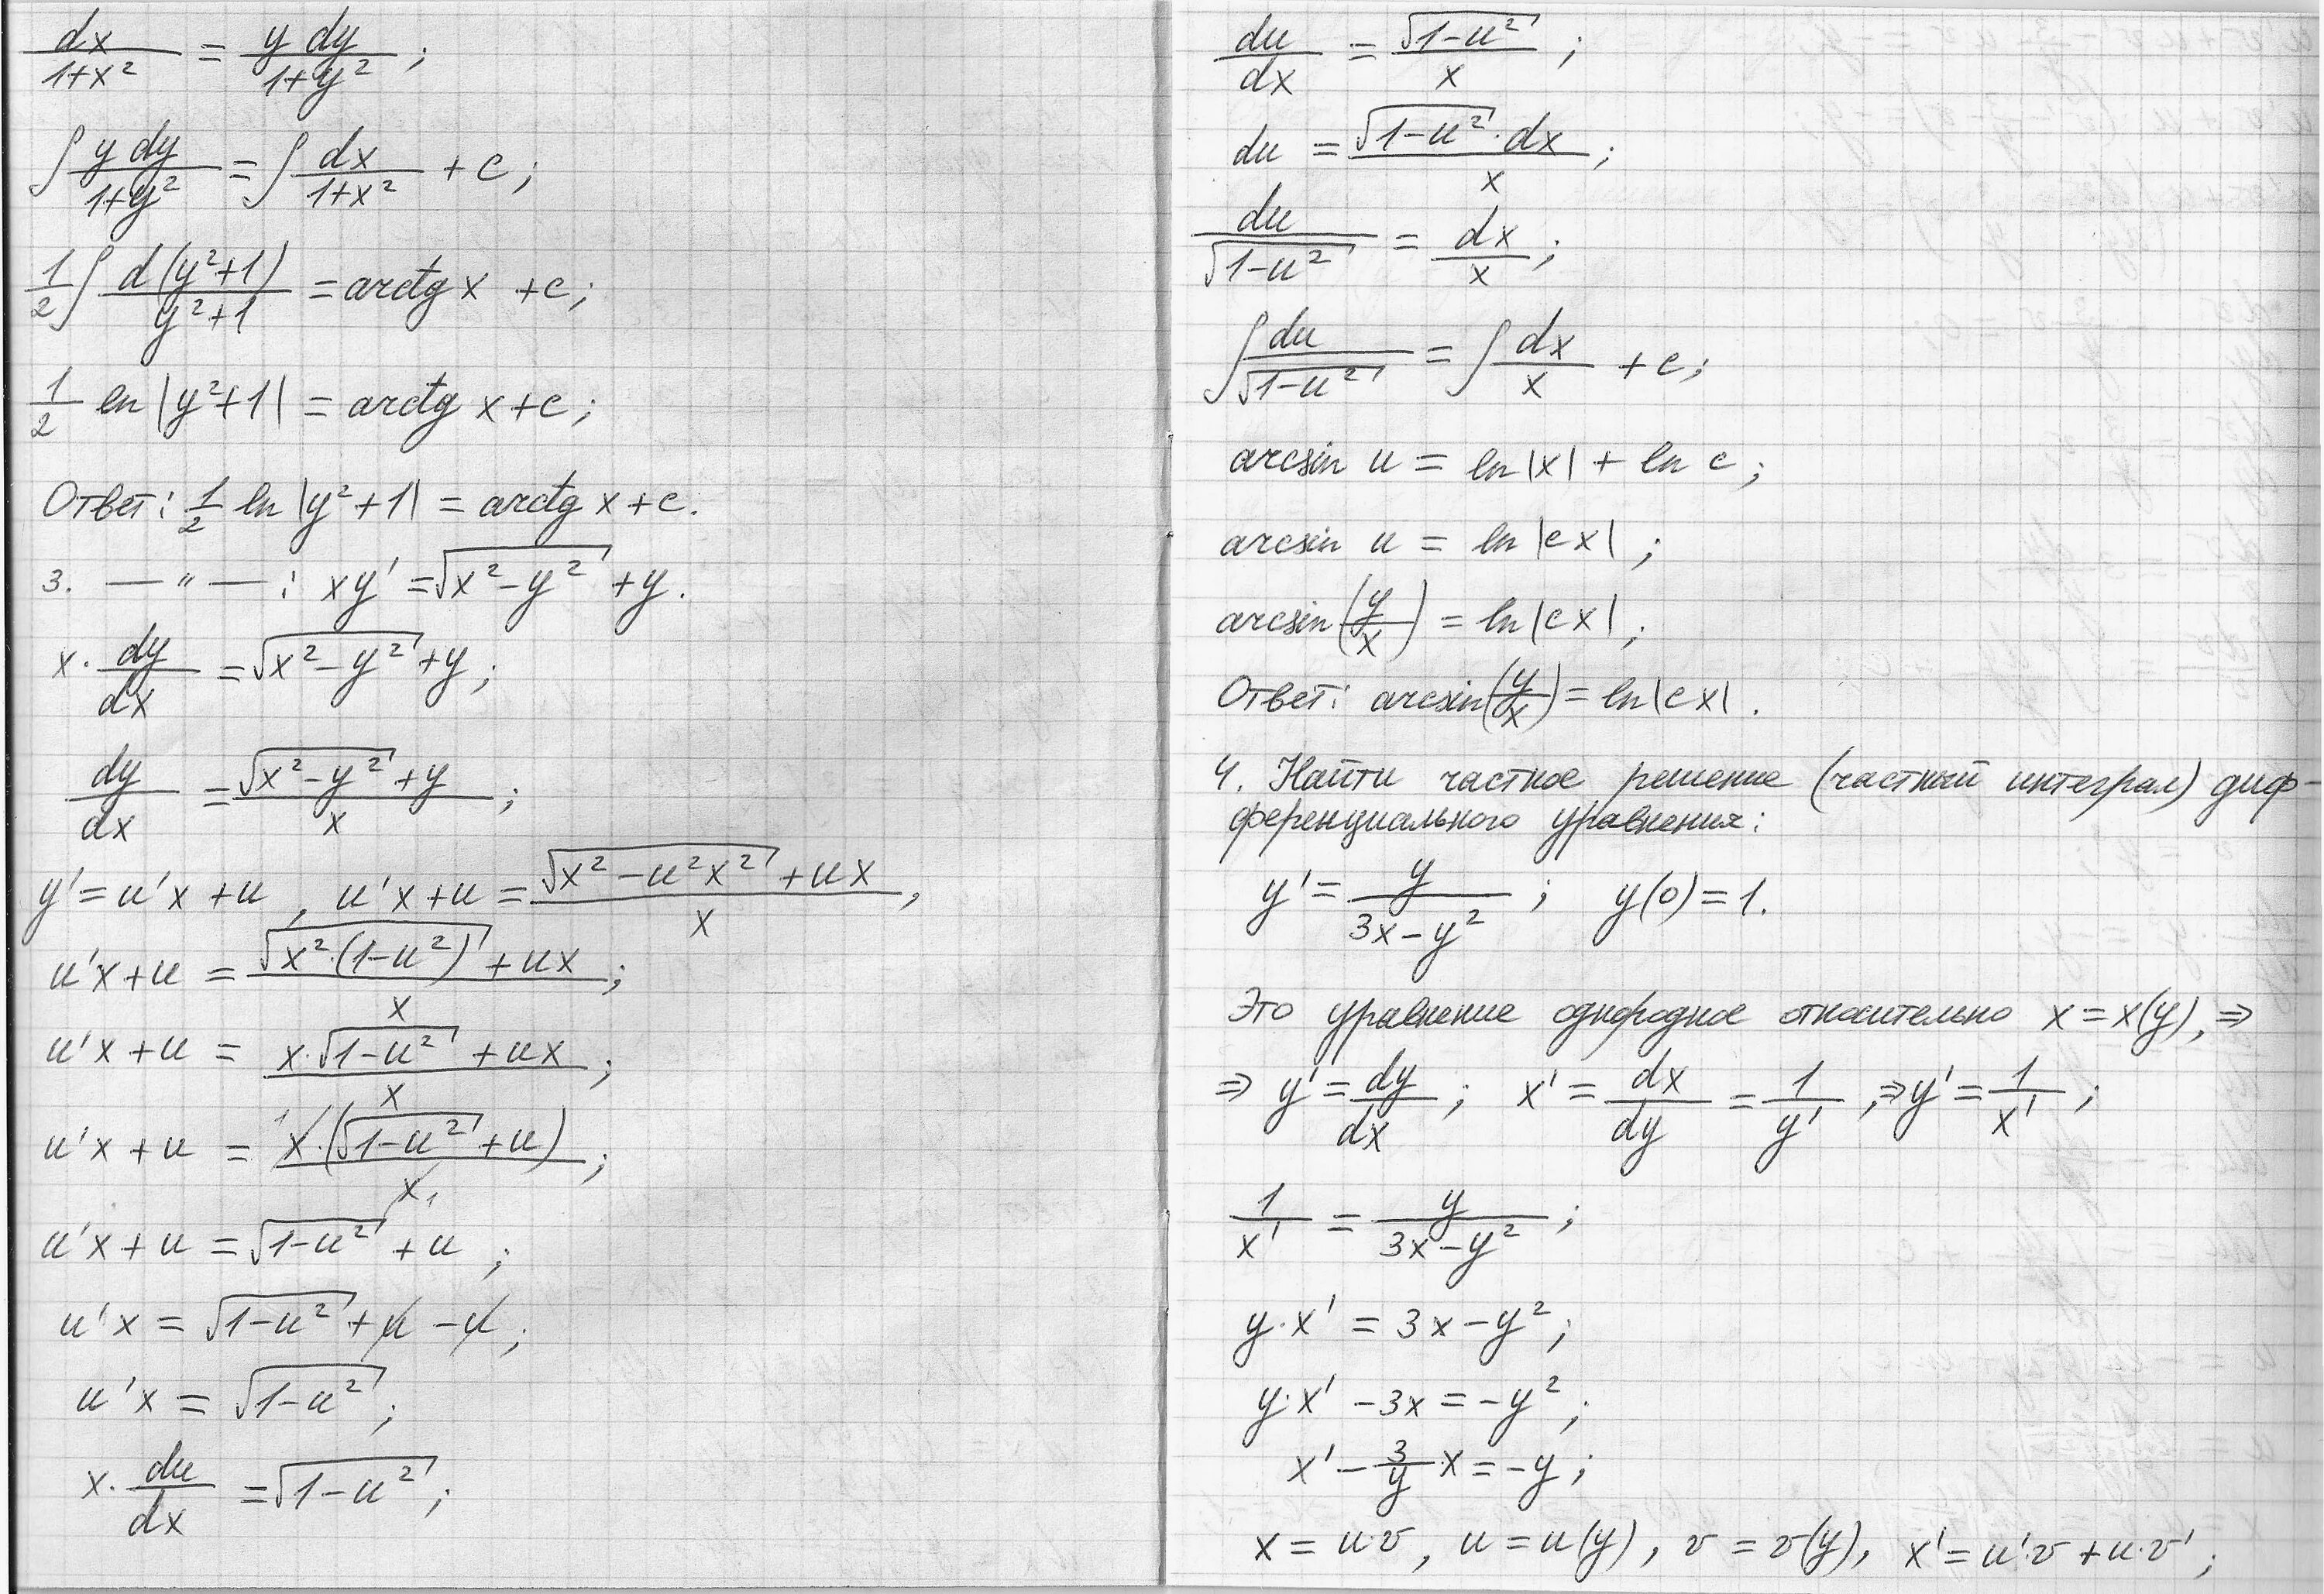 dx/(1+x²) = y dy/(1+y²);
∫ y dy/(1+y²) = ∫ dx/(1+x²) + c;
1/2 ∫ d(y²+1)/(y²+1) = arctg x + c;
1/2 ln|y²+1| = arctg x + c;
Ответ: 1/2 ln|y²+1| = arctg x + c.
3. — " — : xy' = √(x²-y²) + y.
x · dy/dx = √(x²-y²) + y;
dy/dx = (√(x²-y²) + y)/x;
y' = u'x + u, u'x + u = (√(x²-u²x²) + ux)/x,
u'x + u = (√(x²·(1-u²)) + ux)/x;
u'x + u = (x·√(1-u²) + ux)/x;
u'x + u = (x·(√(1-u²) + u))/x;
u'x + u = √(1-u²) + u;
u'x = √(1-u²) + u - u;
u'x = √(1-u²);
x · du/dx = √(1-u²);
du/dx = √(1-u²)/x;
du = √(1-u²)·dx/x;
du/√(1-u²) = dx/x;
∫ du/√(1-u²) = ∫ dx/x + c;
arcsin u = ln|x| + ln c;
arcsin u = ln|cx|;
arcsin(y/x) = ln|cx|;
Ответ: arcsin(y/x) = ln|cx|.
4. Найти частное решение (частный интеграл) диф-
ференциального уравнения:
y' = y/(3x-y²); y(0) = 1.
Это уравнение однородное относительно x = x(y), ⇒
⇒ y' = dy/dx; x' = dx/dy = 1/y', ⇒ y' = 1/x';
1/x' = y/(3x-y²);
y·x' = 3x - y²;
y·x' - 3x = -y²;
x' - 3/y·x = -y;
x = u·v, u = u(y), v = v(y), x' = u'·v + u·v';